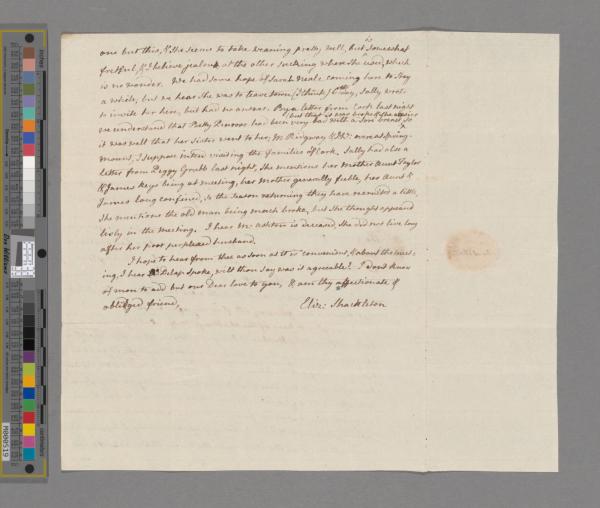 one but this, & she seems to take weaning pretty well, but is somewhat
fretful, & I believe jealous at the other sucking where she used, which
is no wonder. We had some hope of Sarah Neale coming here to stay
a while, but we hear she was to leave town, I think, 6th day, Sally wrote
to invite her here, but had no answer. By a letter from Cork last night
we understand that Patty had been very bad with a sore breast, so
but that it was broke & she easier
it was well that her sister went to her, Ridgway & were at Spring-
mount, I suppose intend visiting the families of Cork. Sally had also a
letter from Peggy Grubb last night, she mentions her Mother Aunt Taylor
& James keys being at meeting, her mother generally feeble, her Aunt &
James long confined, as the season returning they have recruited a little,
she mentions the old man being much broke, but she thought appeared
lively in the meeting. I hear is deceased, she did not live long
after her poor perplexed husband.
I hope to hear from thee as soon as it is convenient, & about the meet-
ing, I hear spoke, wilt thou say was it agreeable? I don't know
of more to add but our Dear love to you, & am thy affectionate &
obliged friend,
Eliz: Shackleton
M000519